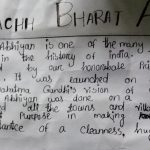 ACHH BHARAT A
Abhiyan is one of the many
in the history of india.
by our honorable Mi
It was launched on
Mahatma Gandhi's vision of
Abhiyan was done on a
all the towns and villa
Purpose in making
tance of a cleanness, hu